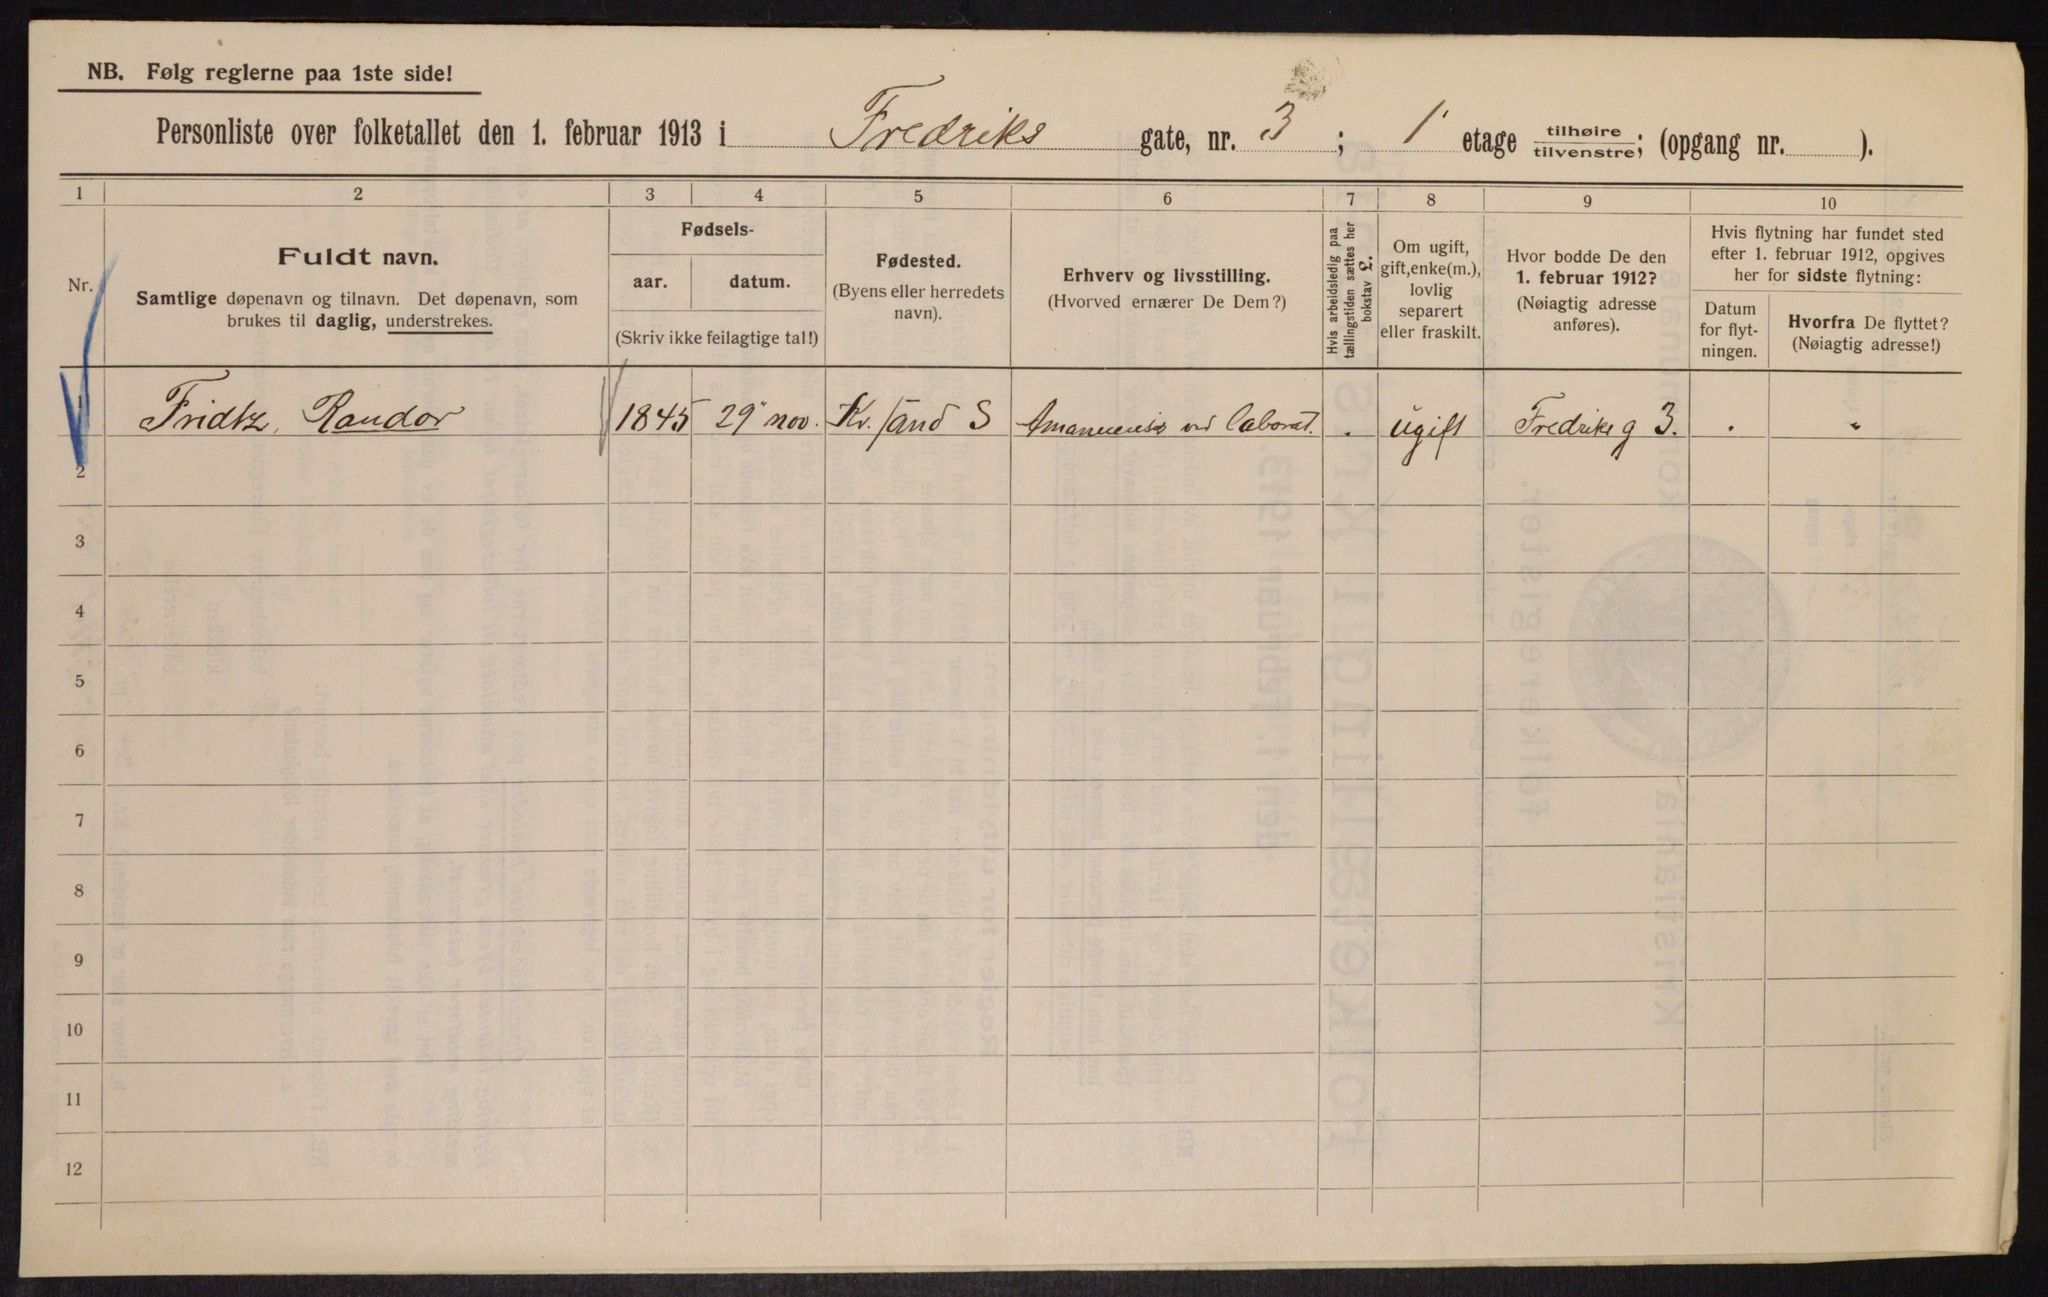 NB. Følg reglerne paa 1ste side!
Personliste over folketallet den 1. februar 1913 i Fredriks gate, nr. 3 ; 1 etage tilhøire tilvenstre; (opgang nr. ).
1 2 3 4 5 6 7 8 9 10
Nr.
Fuldt navn.
Samtlige døpenavn og tilnavn. Det døpenavn, som
brukes til daglig, understrekes.
Fødsels-
aar. datum.
(Skriv ikke feilagtige tal!)
Fødested.
(Byens eller herredets
navn).
Erhverv og livsstilling.
(Hvorved ernærer De Dem?)
Hvis arbeidsledig paa
tællingstiden sættes her
bokstav £.
Om ugift,
gift, enke(m.),
lovlig
separert
eller fraskilt.
Hvor bodde De den
1. februar 1912?
(Nøiagtig adresse
anføres).
Hvis flytning har fundet sted
efter 1. februar 1912, opgives
her for sidste flytning:
Datum
for flyt-
ningen.
Hvorfra De flyttet?
(Nøiagtig adresse!)
1 Fridtz, Randor 1845 29 nov. Kr.sand S Amanuensis ved laborat. . ugift Fredriks g 3. . "
2
3
4
5
6
7
8
9
10
11
12